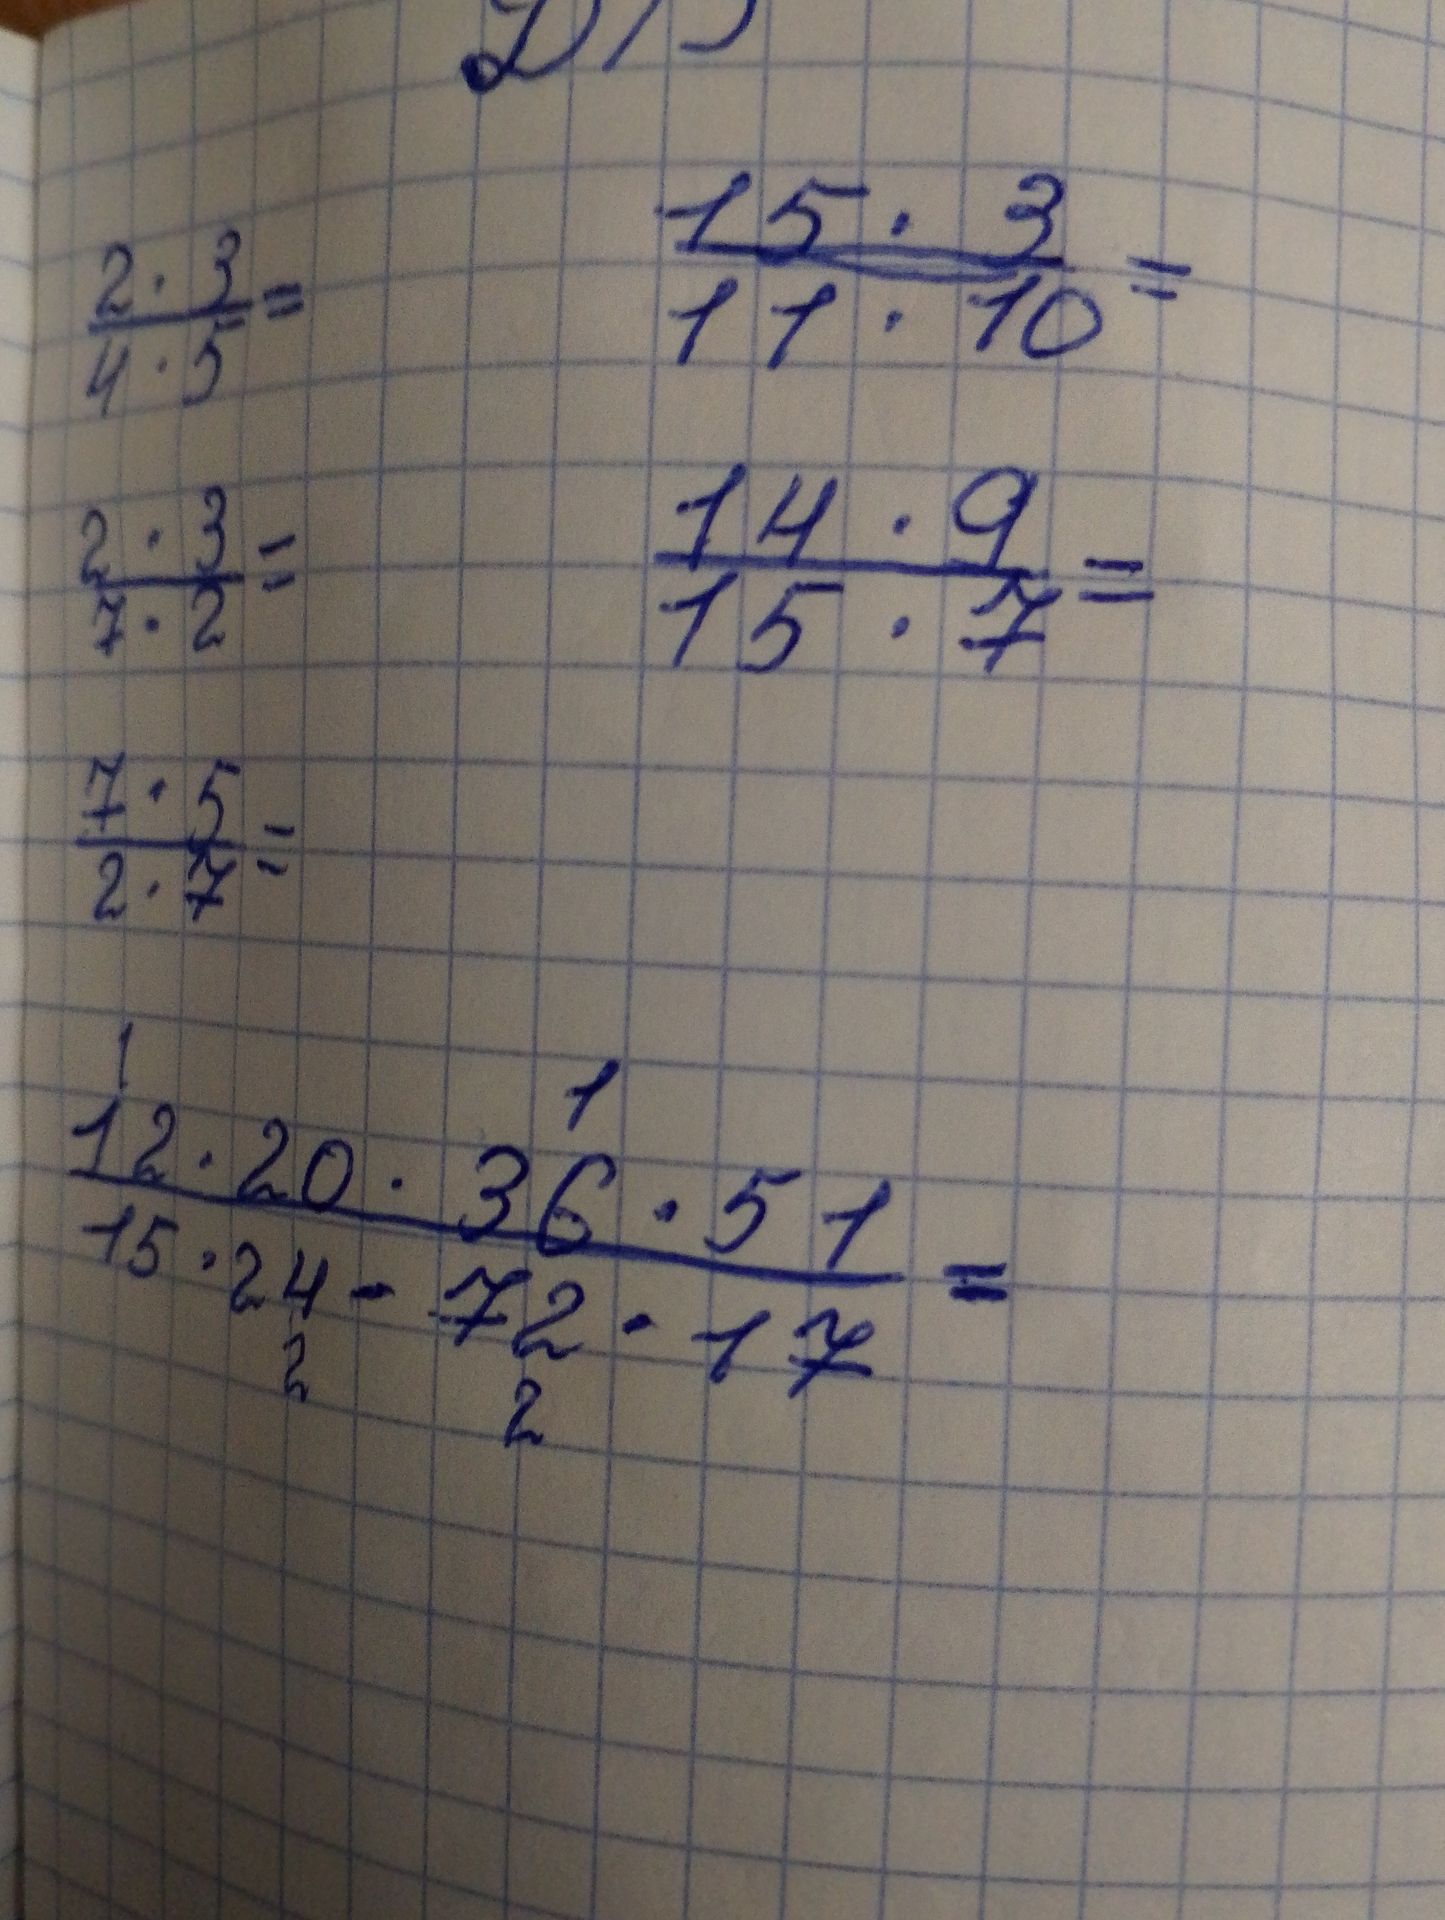 Д/З
2 · 3
4 · 5 =
15 · 3
11 · 10 =
2 · 3
7 · 2 =
14 · 9
15 · 7 =
7 · 5
2 · 7 =
1 1
12 · 20 · 36 · 51
15 · 24 · 72 · 17 =
2 2